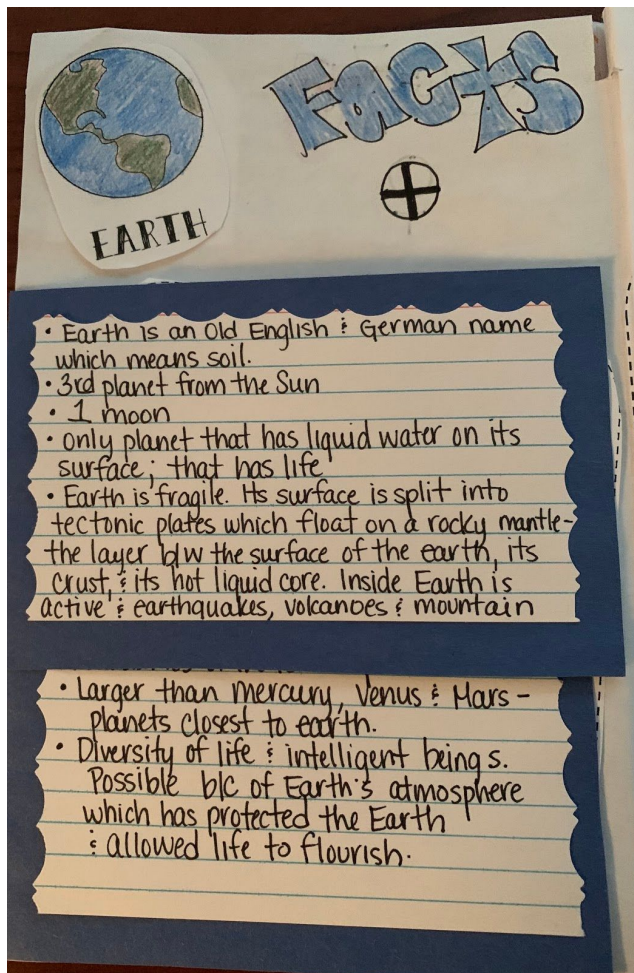 Facts
EARTH
• Earth is an Old English & German name
which means soil.
• 3rd planet from the Sun
• 1 moon
• only planet that has liquid water on its
surface; that has life
• Earth is fragile. Its surface is split into
tectonic plates which float on a rocky mantle-
the layer b/w the surface of the earth, its
crust, & its hot liquid core. Inside Earth is
active & earthquakes, volcanoes & mountain
• Larger than Mercury, Venus & Mars -
planets closest to earth.
• Diversity of life & intelligent beings.
Possible b/c of Earth's atmosphere
which has protected the Earth
& allowed life to flourish.